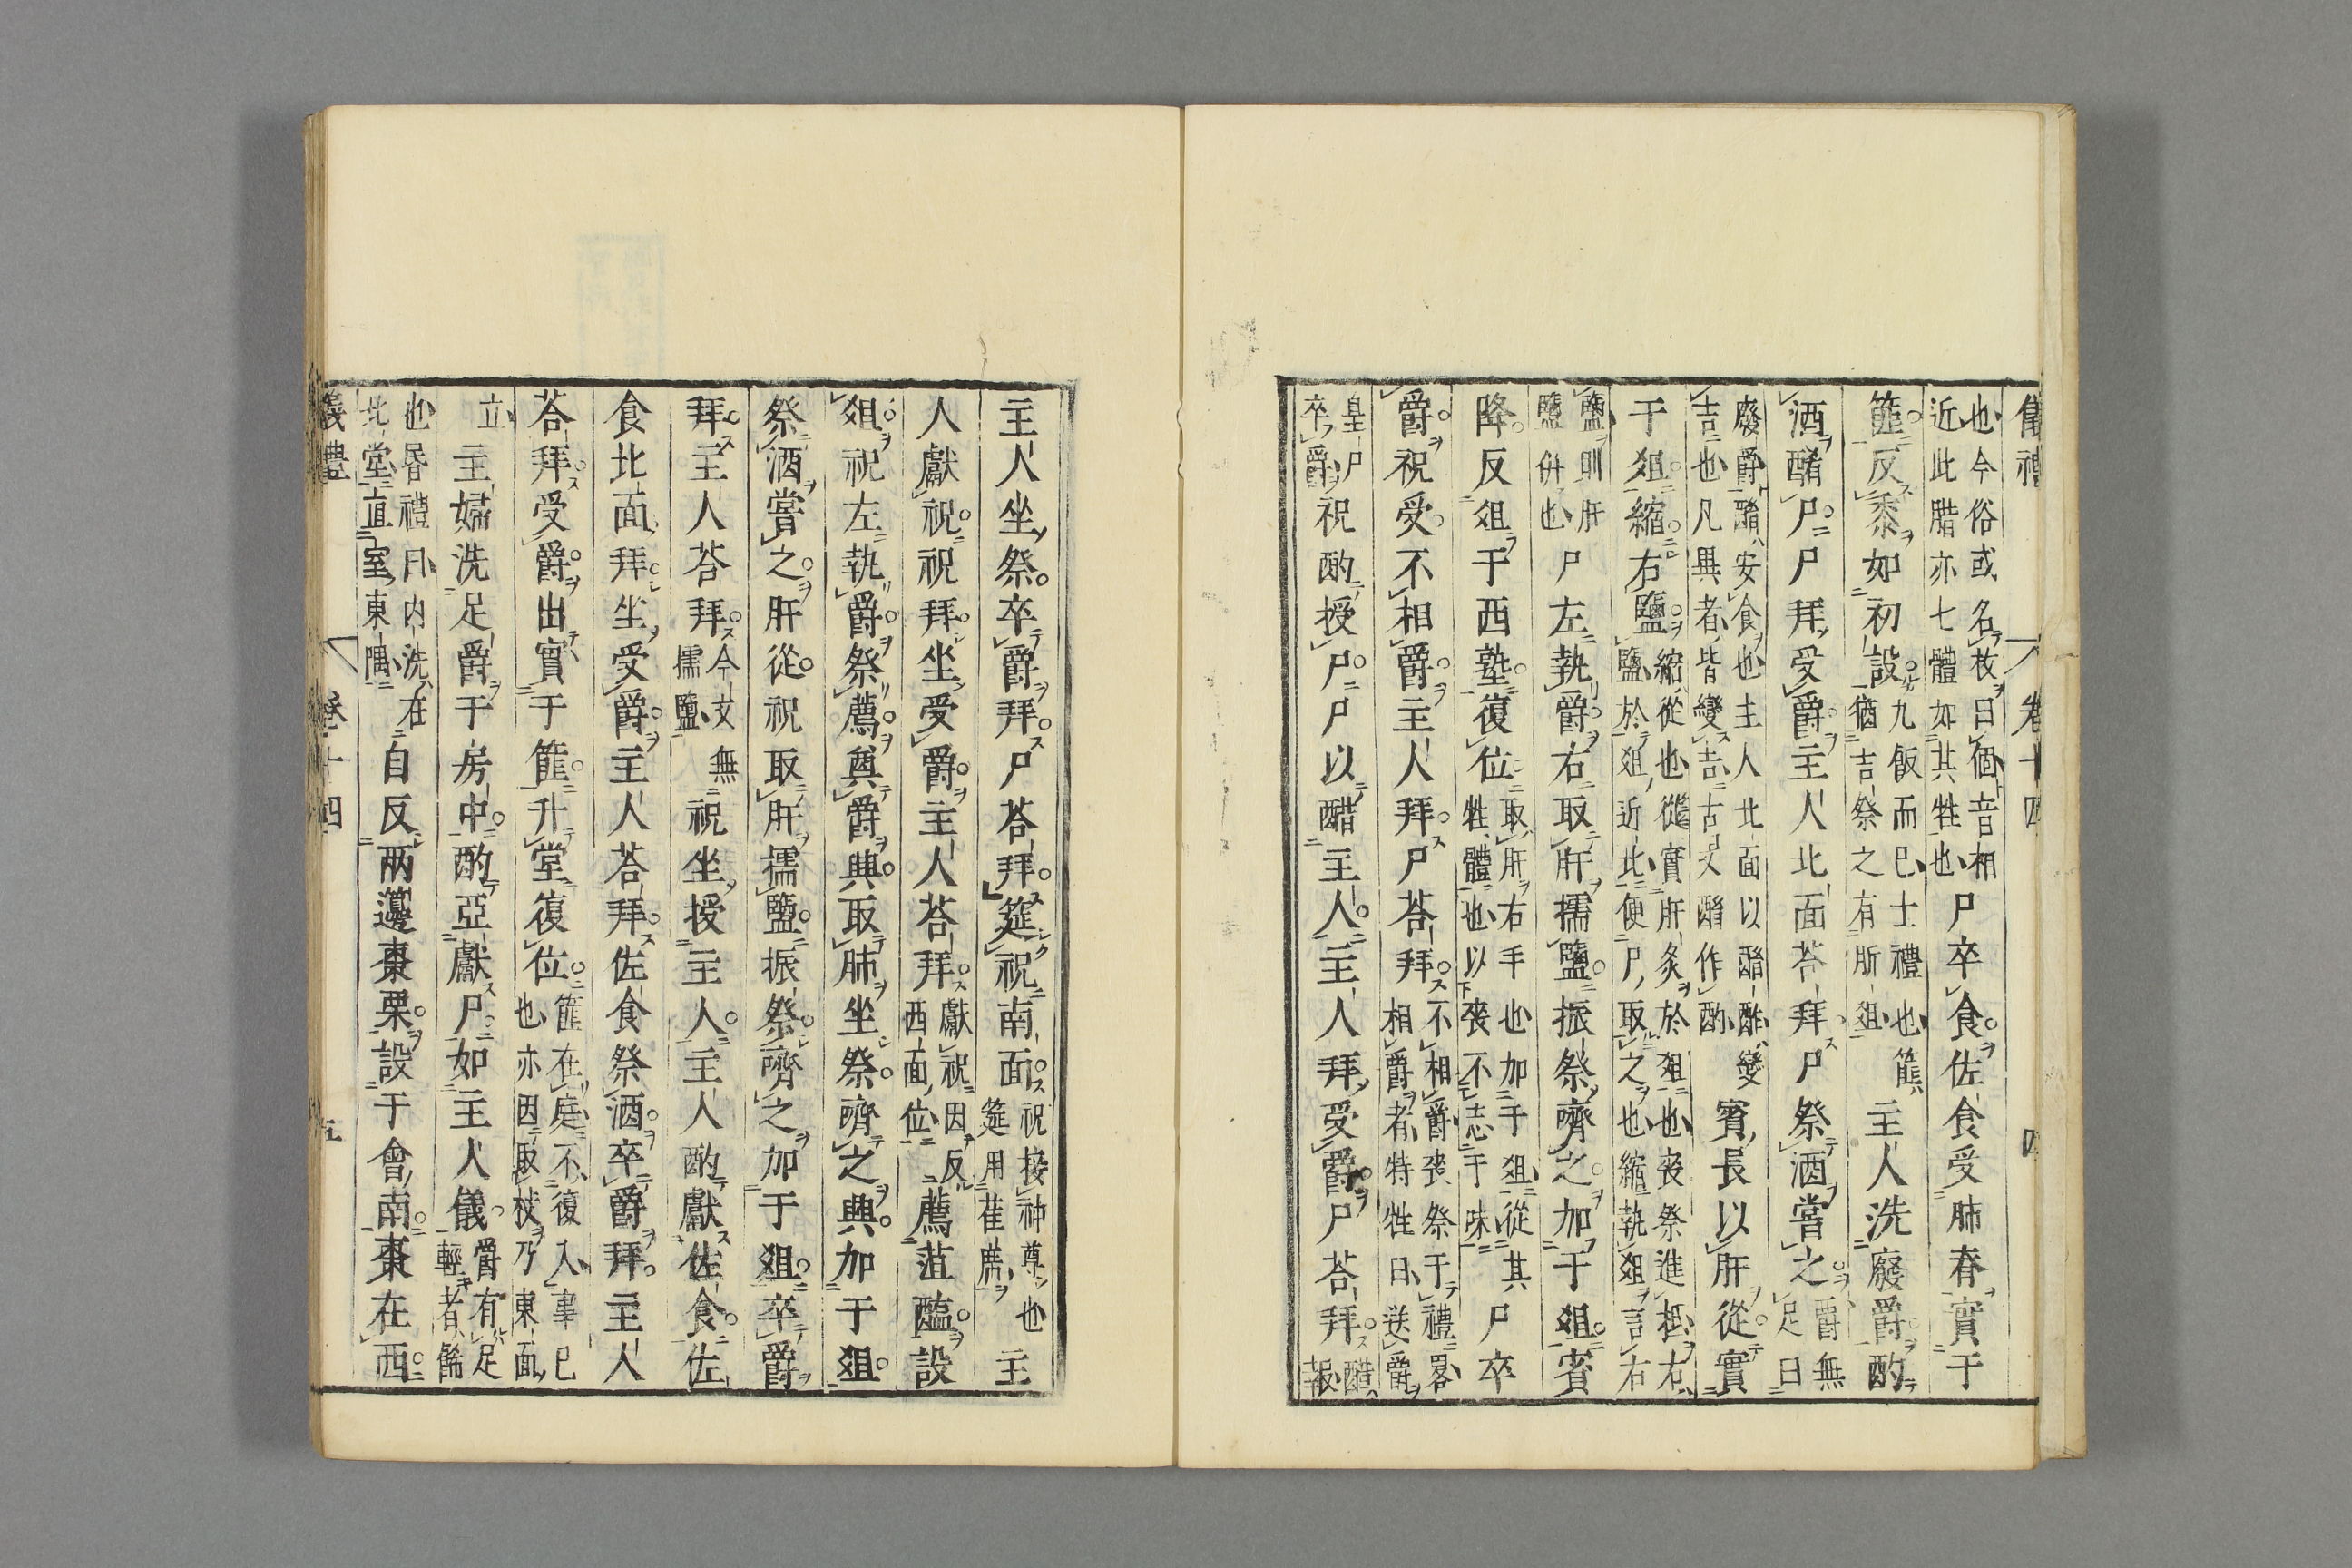 儀禮　卷十四　四
也今俗或名枚曰個音相近此腊亦七體如其牲也尸卒食佐食受肺脊實于
篚反黍如初設九飯而已士禮也篚猶吉祭之有肵俎主人洗廢爵酌
酒酳尸尸拜受爵主人北面荅拜尸祭酒嘗之爵無足曰
廢爵酳安食也主人北面以酳酢變吉也凡異者皆變吉古文酳作酌賓長以肝從實
于俎縮右鹽縮從也從實肝炙於俎也喪祭進柢右鹽於俎近北便尸取之也縮執俎言右
鹽則肝鹽併也尸左執爵右取肝擩鹽振祭嚌之加于俎賓
降反俎于西塾復位取肝右手也加于俎從其牲體也以喪不志于味尸卒
爵祝受不相爵主人拜尸荅拜不相爵喪祭于禮畧相爵者特牲曰送爵
皇尸卒爵祝酌授尸尸以醋主人主人拜受爵尸荅拜醋報
主人坐祭卒爵拜尸荅拜筵祝南面祝接神尊也筵用萑席主
人獻祝祝拜坐受爵主人荅拜獻祝因反西面位薦菹醢設
俎祝左執爵祭薦奠爵興取肺坐祭嚌之興加于俎
祭酒嘗之肝從祝取肝擩鹽振祭嚌之加于俎卒爵
拜主人荅拜今文無擩鹽祝坐授主人主人酌獻佐食佐
食北面拜坐受爵主人荅拜佐食祭酒卒爵拜主人
荅拜受爵出實于篚升堂復位篚在庭不復入事已也亦因取杖乃東面
立主婦洗足爵于房中酌亞獻尸如主人儀爵有足輕者飾
也昬禮曰內洗在北堂直室東隅自反两籩棗栗設于會南棗在西
儀禮　卷十四　五